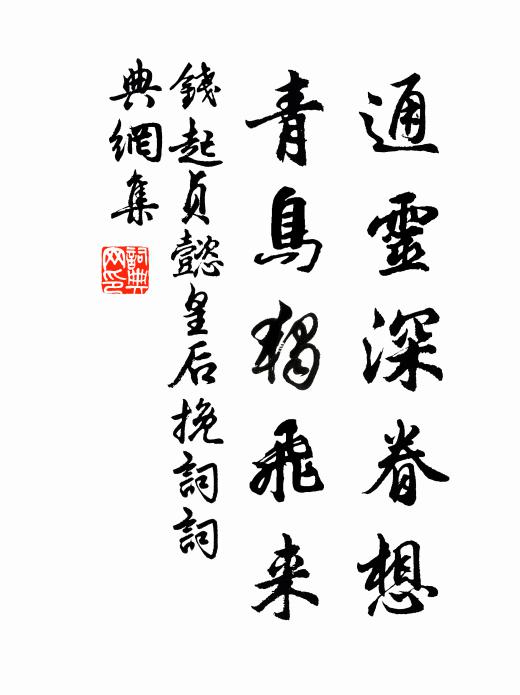 通靈深眷想
青鳥獨飛来
錢起貞懿皇后挽詞詞
典網集
詞典
网印